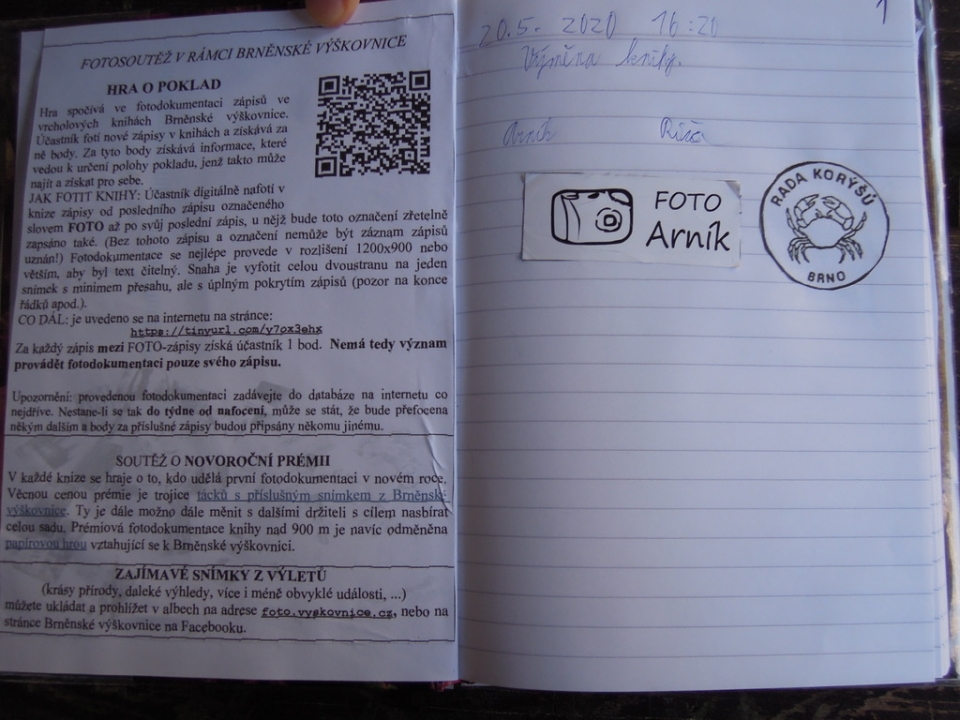 FOTOSOUTĚŽ V RÁMCI BRNĚNSKÉ VÝŠKOVNICE
HRA O POKLAD
Hra spočívá ve fotodokumentaci zápisů ve
vrcholových knihách Brněnské výškovnice.
Účastník fotí nové zápisy v knihách a získává za
ně body. Za tyto body získává informace, které
vedou k určení polohy pokladu, jenž takto může
najít a získat pro sebe.
JAK FOTIT KNIHY: Účastník digitálně nafotí v
knize zápisy od posledního zápisu označeného
slovem FOTO až po svůj poslední zápis, u nějž bude toto označení zřetelně
zapsáno také. (Bez tohoto zápisu a označení nemůže být záznam zápisů
uznán!) Fotodokumentace se nejlépe provede v rozlišení 1200x900 nebo
větším, aby byl text čitelný. Snaha je vyfotit celou dvoustranu na jeden
snímek s minimem přesahu, ale s úplným pokrytím zápisů (pozor na konce
řádků apod.).
CO DÁL: je uvedeno se na internetu na stránce:
https://tinyurl.com/y7ox3ehx
Za každý zápis mezi FOTO-zápisy získá účastník 1 bod. Nemá tedy význam
provádět fotodokumentaci pouze svého zápisu.
Upozornění: provedenou fotodokumentaci zadávejte do databáze na internetu co
nejdříve. Nestane-li se tak do týdne od nafocení, může se stát, že bude přefocena
někým dalším a body za příslušné zápisy budou připsány někomu jinému.
SOUTĚŽ O NOVOROČNÍ PRÉMII
V každé knize se hraje o to, kdo udělá první fotodokumentaci v novém roce.
Věcnou cenou prémie je trojice tácků s příslušným snímkem z Brněnské
výškovnice. Ty je dále možno dále měnit s dalšími držiteli s cílem nasbírat
celou sadu. Prémiová fotodokumentace knihy nad 900 m je navíc odměněna
papírovou hrou vztahující se k Brněnské výškovnici.
ZAJÍMAVÉ SNÍMKY Z VÝLETŮ
(krásy přírody, daleké výhledy, více i méně obvyklé události, ...)
můžete ukládat a prohlížet v albech na adrese foto.vyskovnice.cz, nebo na
stránce Brněnské výškovnice na Facebooku.
1
20.5. 2020 16:20
Výměna knihy.
Arník Ríša
FOTO
Arník
RADA KORÝŠŮ
BRNO